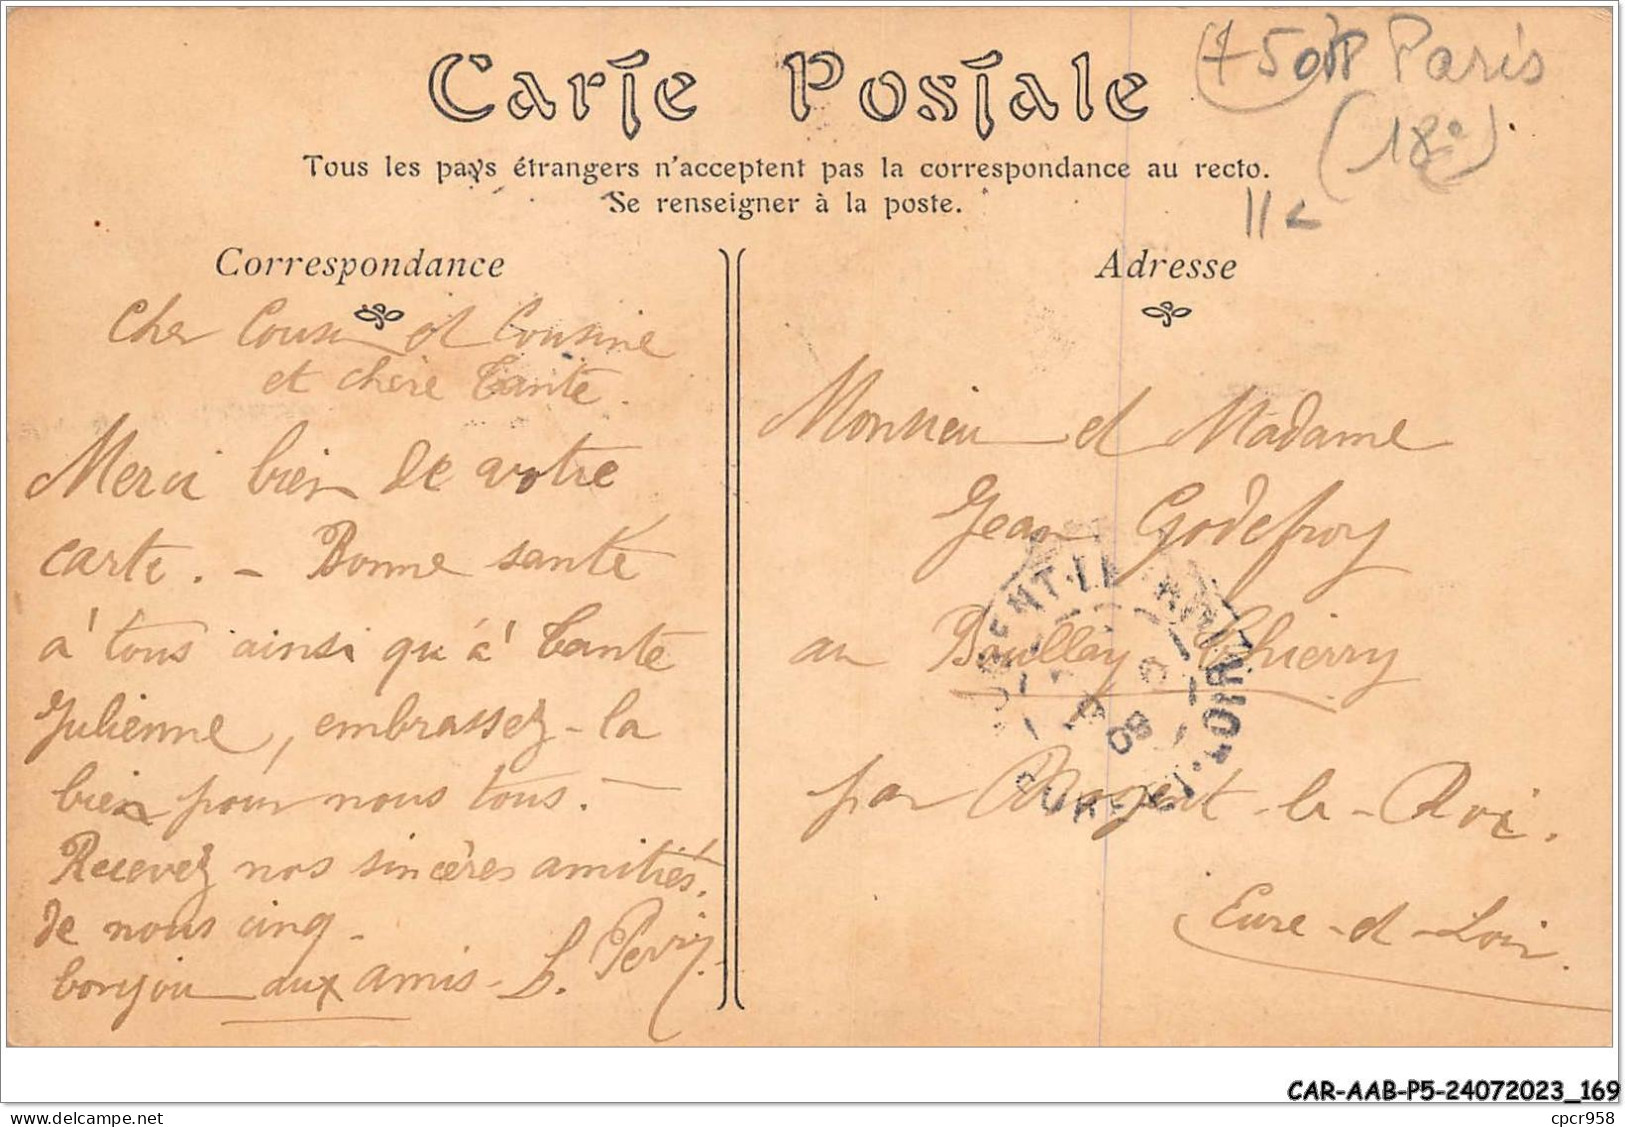 75018 Paris
(18e)
Carte Postale
Tous les pays étrangers n'acceptent pas la correspondance au recto.
Se renseigner à la poste.
Correspondance
Cher Cousin et Cousine
et chère Tante.
Merci bien de votre
carte. - Bonne santé
à tous ainsi qu'à Tante
Julienne, embrassez-la
bien pour nous tous. -
Recevez nos sincères amitiés.
de nous cinq -
bonjour aux amis - L. Perry.
Adresse
Monsieur et Madame
Jean Godefroy
au Boullay Thierry
par Nogent-le-Roi.
Eure-et-Loir.
NOGENT-LE-ROI
08
EURE-ET-LOIR
CAR-AAB-P5-24072023_169
www.delcampe.net
cpcr958